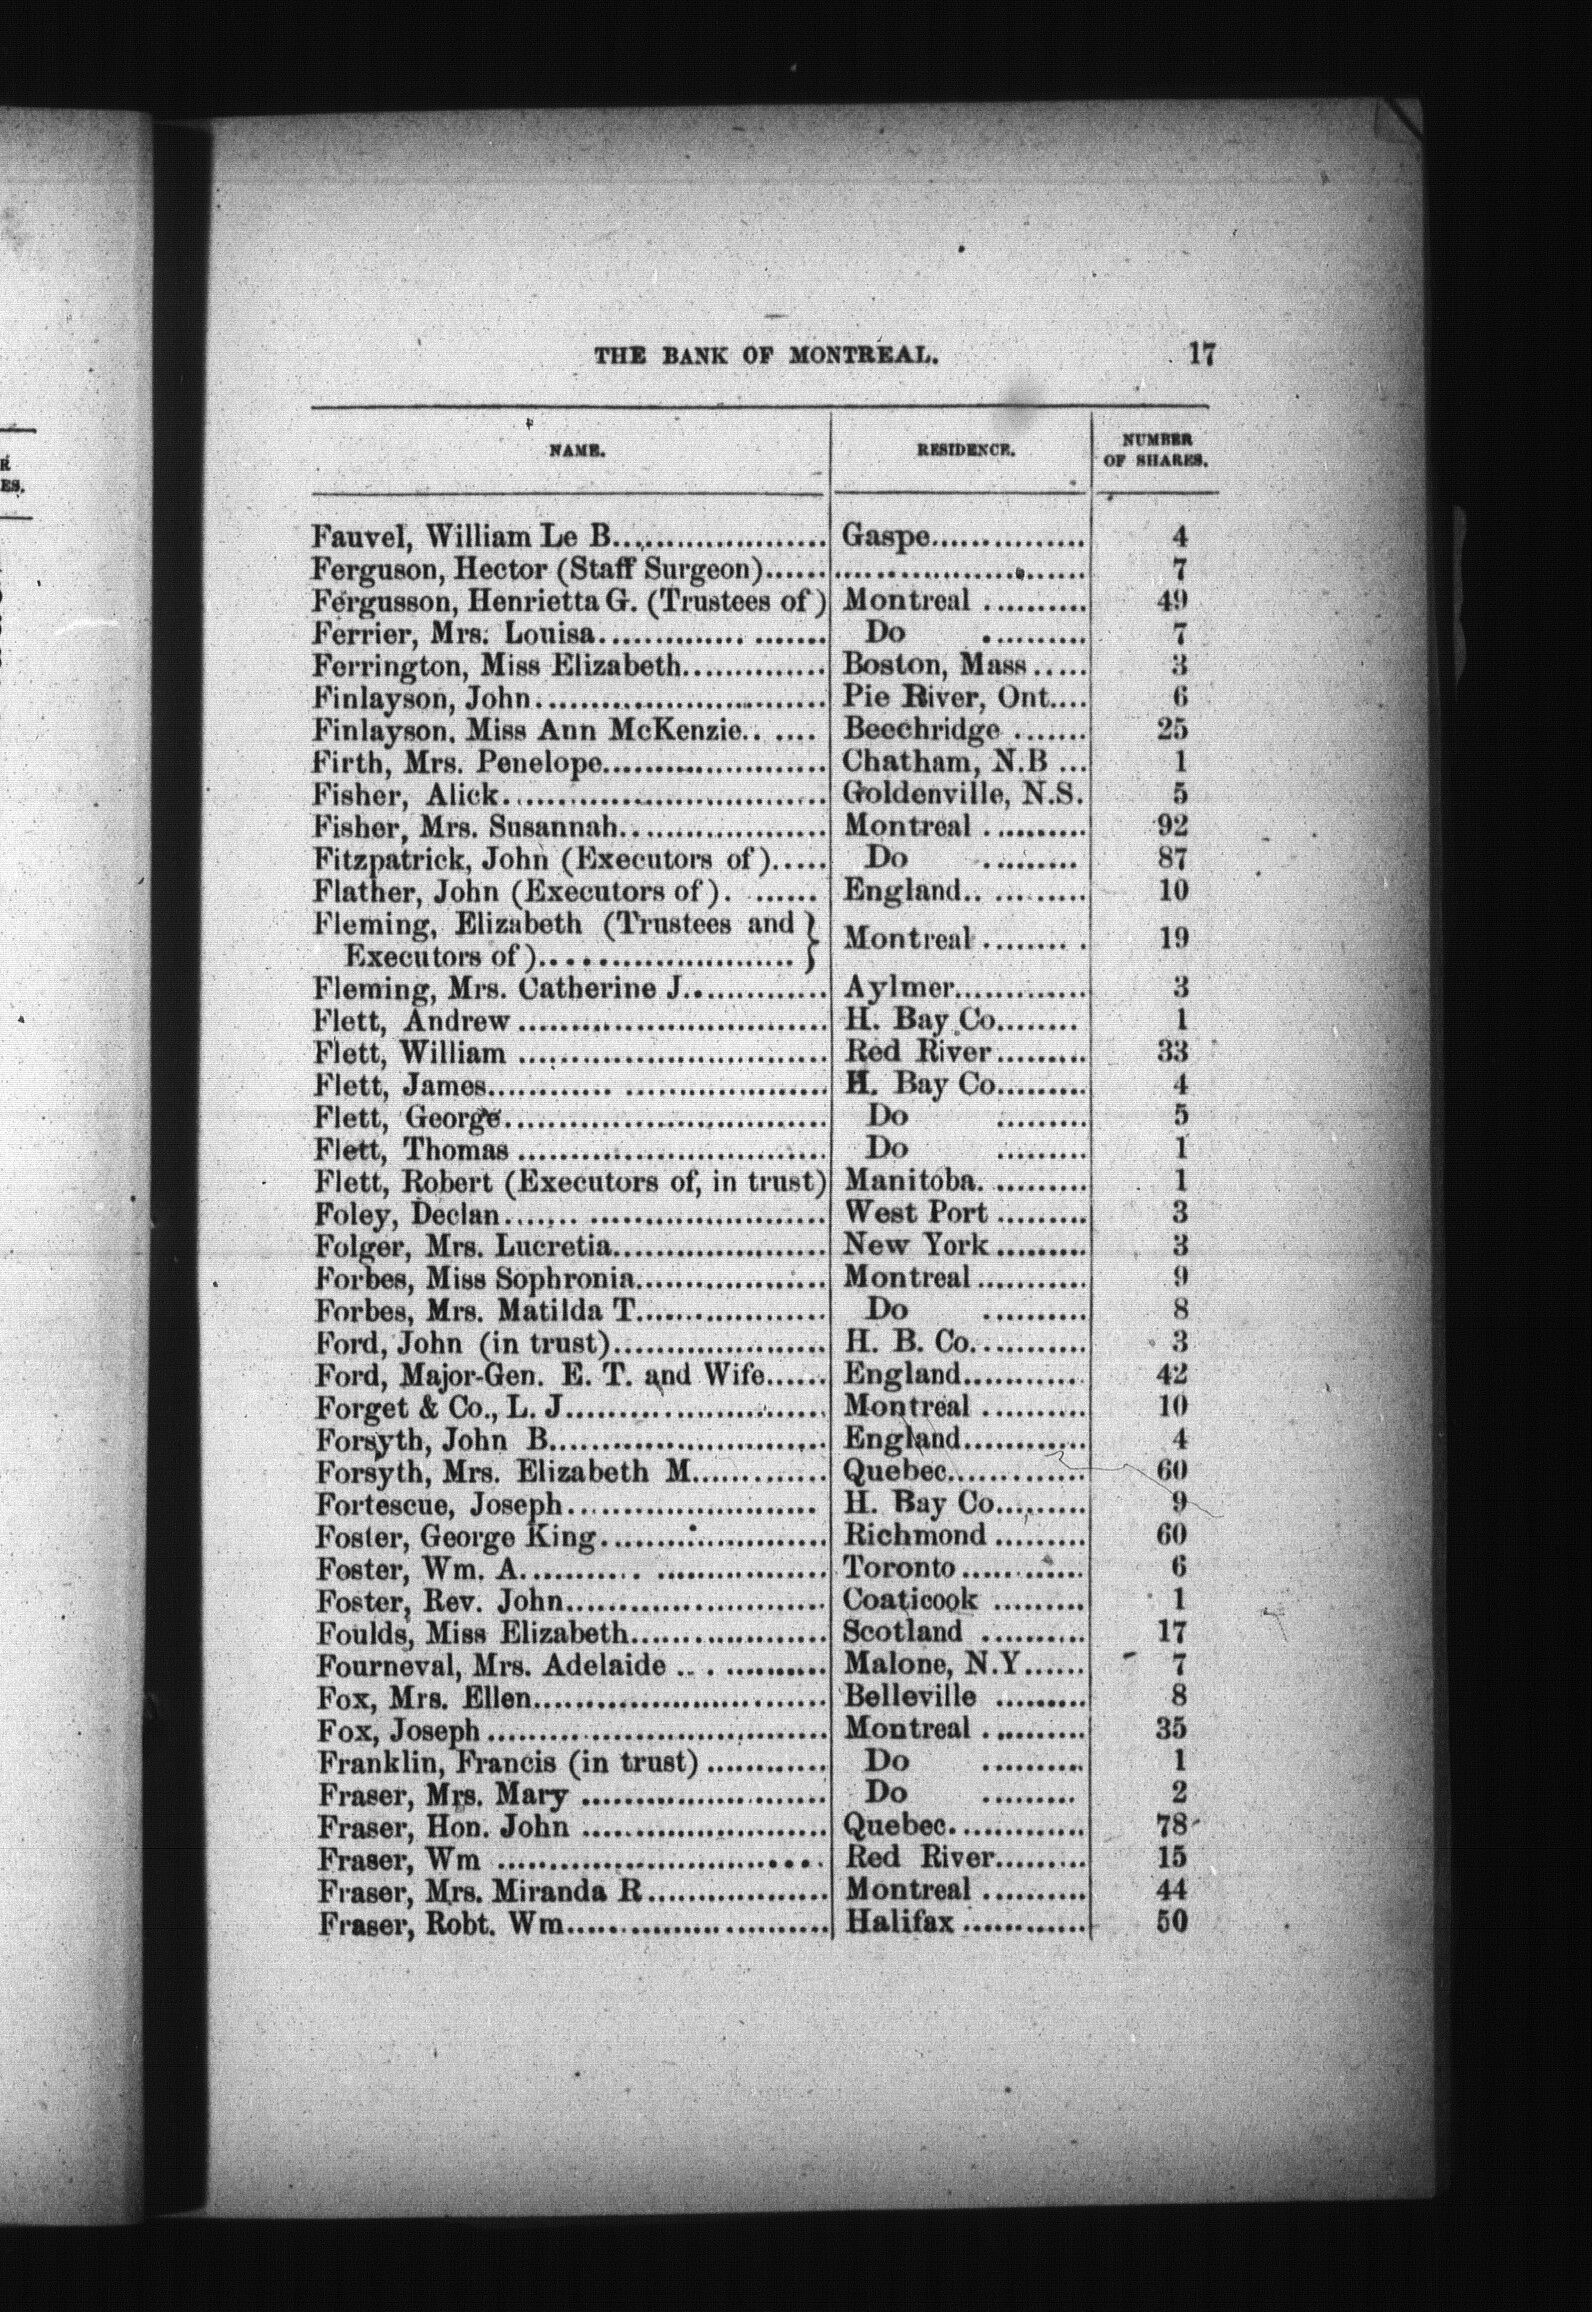 THE BANK OF MONTREAL. 17
NAME. RESIDENCE. NUMBER OF SHARES.
Fauvel, William Le B..................... Gaspe............... 4
Ferguson, Hector (Staff Surgeon)...... ........................ 7
Fergusson, Henrietta G. (Trustees of) Montreal .......... 49
Ferrier, Mrs. Louisa.............. ....... Do .......... 7
Ferrington, Miss Elizabeth.............. Boston, Mass..... 3
Finlayson, John............................ Pie River, Ont.... 6
Finlayson, Miss Ann McKenzie.. .... Beechridge ....... 25
Firth, Mrs. Penelope...................... Chatham, N.B ... 1
Fisher, Alick............................... Goldenville, N.S. 5
Fisher, Mrs. Susannah.................... Montreal .......... 92
Fitzpatrick, John (Executors of)..... Do ......... 87
Flather, John (Executors of). ...... England.. ......... 10
Fleming, Elizabeth (Trustees and
Executors of)........................ } Montreal ........ . 19
Fleming, Mrs. Catherine J.............. Aylmer............. 3
Flett, Andrew .............................. H. Bay Co........ 1
Flett, William .............................. Red River......... 33
Flett, James............ .................... H. Bay Co......... 4
Flett, George............................... Do ......... 5
Flett, Thomas .............................. Do ......... 1
Flett, Robert (Executors of, in trust) Manitoba. ......... 1
Foley, Declan....... ....................... West Port ......... 3
Folger, Mrs. Lucretia..................... New York......... 3
Forbes, Miss Sophronia................... Montreal ........... 9
Forbes, Mrs. Matilda T................... Do .......... 8
Ford, John (in trust)..................... H. B. Co........... 3
Ford, Major-Gen. E. T. and Wife...... England............ 42
Forget & Co., L. J......................... Montreal .......... 10
Forsyth, John B........................... England............ 4
Forsyth, Mrs. Elizabeth M............. Quebec............. 60
Fortescue, Joseph........................ H. Bay Co......... 9
Foster, George King...................... Richmond ......... 60
Foster, Wm. A............ ................. Toronto ............ 6
Foster, Rev. John......................... Coaticook ......... 1
Foulds, Miss Elizabeth................... Scotland .......... 17
Fourneval, Mrs. Adelaide .. . .......... Malone, N.Y...... 7
Fox, Mrs. Ellen............................. Belleville ......... 8
Fox, Joseph ................................. Montreal .......... 35
Franklin, Francis (in trust) ............ Do .......... 1
Fraser, Mrs. Mary ........................ Do ......... 2
Fraser, Hon. John ........................ Quebec............. 78
Fraser, Wm ................................ Red River......... 15
Fraser, Mrs. Miranda R.................. Montreal .......... 44
Fraser, Robt. Wm......................... Halifax ............ 50
R
ES.